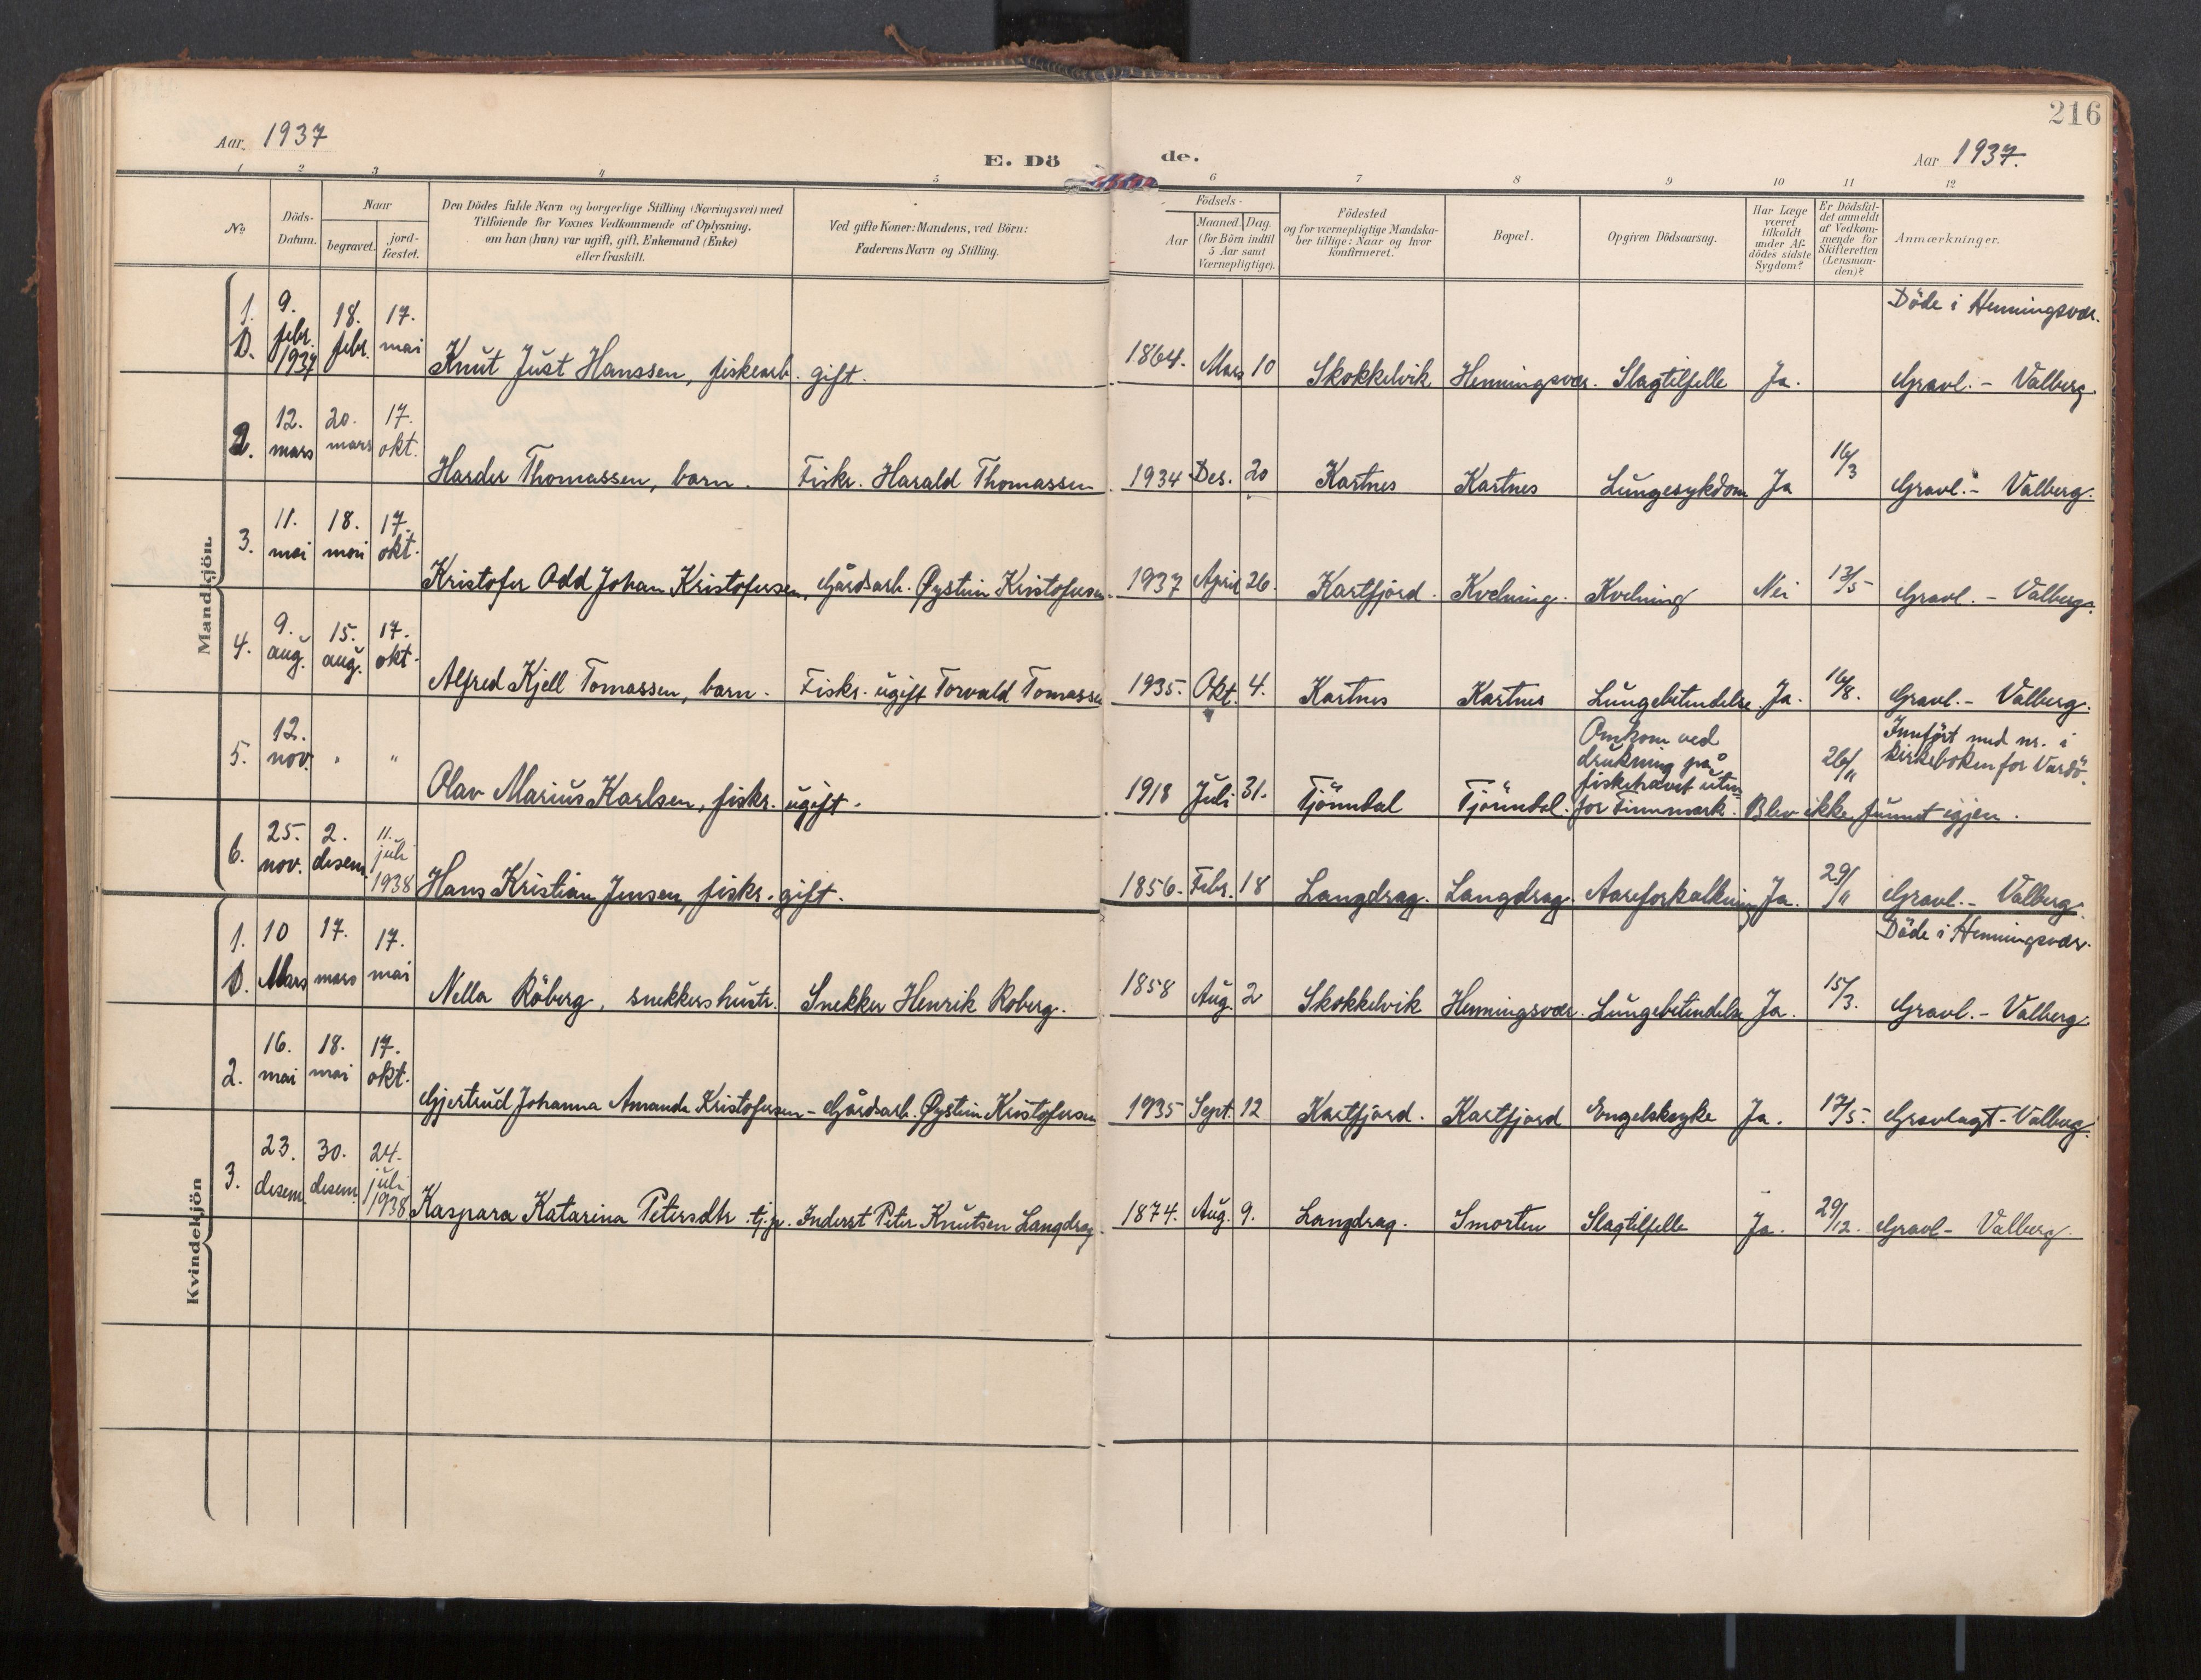 216
Aar 1937
E. Dö de.
Aar 1937.
1 2 3 4 5 6 7 8 9 10 11 12
No
Döds-
Datum.
Naar
begravet.
jord-
fæstet.
Den Dödes fulde Navn og borgerlige Stilling (Næringsvei) med
Tilföiende for Voxnes Vedkommende af Oplysning,
om han (hun) var ugift, gift, Enkemand (Enke)
eller fraskilt.
Ved gifte Koner: Mandens, ved Börn:
Faderens Navn og Stilling.
Födsels-
Aar
Maaned. Dag.
(for Börn indtil
5 Aar samt
Værnepligtige).
Födested
og for værnepligtige Mandska-
ber tillige: Naar og hvor
konfirmeret.
Bopæl.
Opgiven Dödsaarsag.
Har Læge
været
tilkaldt
under Af-
dödes sidste
Sygdom?
Er Dödsfal-
det anmeldt
af Vedkom-
mende for
Skifteretten
(Lensman-
den)?
Anmærkninger.
Mandkjön.
1. D. 9. febr. 1937 18. febr. 17. mai Knut Just Hanssen, fiskearb. gift. 1864. Mars 10 Skokkelvik Henningsvær. Slagtilfelle Ja. Döde i Henningsvær. Gravl. - Valberg.
2. 12. mars 20. mars 17. okt. Harder Thomassen, barn. Fiskr. Harald Thomassen 1934 Des. 20 Kartnes Kartnes Lungesykdom Ja 16/3 Gravl. - Valberg.
3. 11. mai 18. mai 17. okt. Kristofer Odd Johan Kristofersen, Gårdsarb. Øystein Kristofersen 1937 April 26. Kartfjord. Kvelning. Kvelning Nei 13/5 Gravl. - Valberg.
4. 9. aug. 15. aug. 17. okt. Alfred Kjell Tomassen, barn. Fiskr. ugift Torvald Tomassen 1935. Okt. 4. Kartnes Kartnes Lungebetendelse Ja. 16/8. Gravl. - Valberg.
5. 12. nov. " " Olav Marius Karlsen, fiskr. ugift. 1918 Juli 31. Tjönndal Tjönndal. Omkom ved
drukning på
fiskehavet uten-
for Finnmark. Blev ikke funnet igjen. 26/11 Innfört med nr. i
kirkeboken for Vardö.
6. 25. nov. 2. desem. 11. juli 1938 Hans Kristian Jensen, fiskr. gift. 1856. Febr. 18 Langdrag. Langdrag. Aareforkalkning Ja. 29/11 Gravl. - Valberg.
Kvindekjön
1. D. 10 Mars 17. mars 17. mai Nella Röberg, snekkershustr. Snekker Henrik Roberg. 1858 Aug. 2 Skokkelvik Henningsvær. Lungebetendelse Ja. 15/3. Döde i Henningsvær. Gravl. - Valberg
2. 16. mai 18. mai 17. okt. Gjertrud Johanna Amanda Kristofersen - Gårdsarb. Øystein Kristofersen 1935 Sept. 12 Kartfjord. Kartfjord Engelsksyke Ja. 17/5. Gravlagt - Valberg.
3. 23. desem. 30. desem. 24. juli 1938 Kaspara Katarina Petersdtr. tj.p. Inderst Peter Knutsen Langdrag. 1874. Aug. 9. Langdrag. Smorten Slagtilfelle Ja. 29/12. Gravl - Valberg.